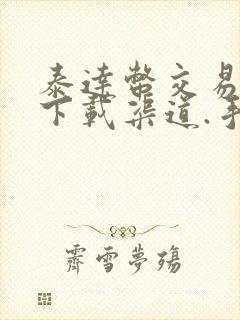 泰達幣交易
下載渠道.手
霽雪夢殤